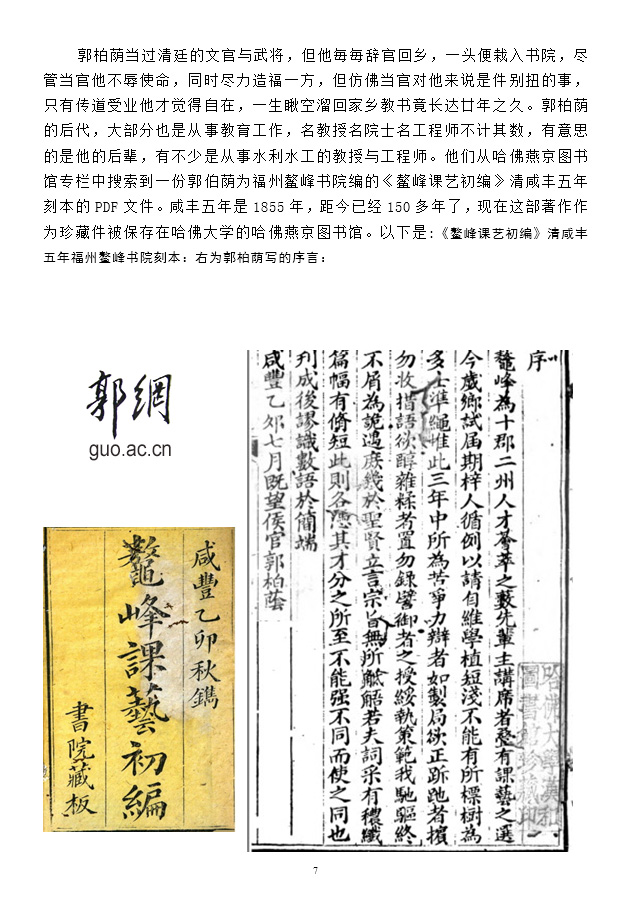 郭柏荫当过清廷的文官与武将，但他每每辞官回乡，一头便栽入书院，尽
管当官他不辱使命，同时尽力造福一方，但仿佛当官对他来说是件别扭的事，
只有传道受业他才觉得自在，一生瞅空溜回家乡教书竟长达廿年之久。郭柏荫
的后代，大部分也是从事教育工作，名教授名院士名工程师不计其数，有意思
的是他的后辈，有不少是从事水利水工的教授与工程师。他们从哈佛燕京图书
馆专栏中搜索到一份郭伯荫为福州鳌峰书院编的《鳌峰课艺初编》清咸丰五年
刻本的 PDF 文件。咸丰五年是 1855 年，距今已经 150 多年了，现在这部著作作
为珍藏件被保存在哈佛大学的哈佛燕京图书馆。以下是:《鳌峰课艺初编》清咸丰
五年福州鳌峰书院刻本：右为郭柏荫写的序言：
郭網
guo.ac.cn
序
鼇峰為十郡二州人才薈萃之藪先輩主講席者憂有課藝之選
今歲鄉試届期梓人循例以請自維學植短淺不能有所標樹為
多士準繩惟此三年中所為苦爭力辯者如製局欲正跅跎者擯
勿收措語欲醇雜糅者置勿錄譬御者之授綏執策範我馳驅終
不屑為詭遇庶幾於聖賢立言宗旨無所觝牾若夫詞采有穠纖
篇幅有脩短此則各憑其才分之所至不能强不同而使之同也
刋成後謬識數語於簡端
咸豐乙卯七月既望侯官郭柏蔭
咸豐乙卯秋鐫
鼇峰課藝初編
書院藏板
7